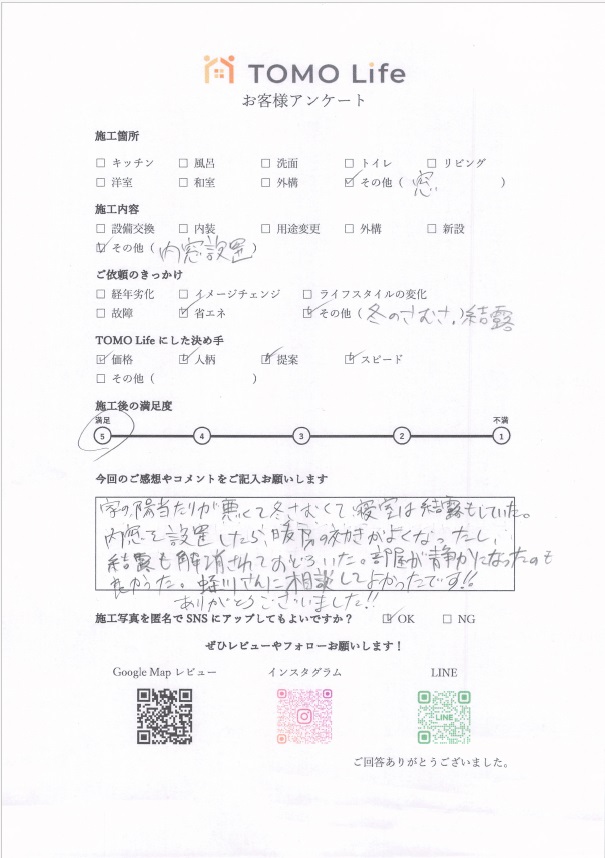 TOMO Life
お客様アンケート
施工箇所
□ キッチン □ 風呂 □ 洗面 □ トイレ □ リビング
□ 洋室 □ 和室 □ 外構 ☑ その他 ( 窓 )
施工内容
□ 設備交換 □ 内装 □ 用途変更 □ 外構 □ 新設
☑ その他 ( 内窓設置 )
ご依頼のきっかけ
□ 経年劣化 □ イメージチェンジ □ ライフスタイルの変化
□ 故障 ☑ 省エネ ☑ その他 ( 冬のさむさ,)結露
TOMO Life にした決め手
☑ 価格 ☑ 人柄 ☑ 提案 ☑ スピード
□ その他 ( )
施工後の満足度
満足 不満
5 4 3 2 1
今回のご感想やコメントをご記入お願いします
家の陽当たりが悪くて冬さむくて、寝室は結露もしていた。
内窓を設置したら暖房の効きがよくなったし、
結露も解消されておどろいた。部屋が静かになったのも
良かった。蜂川さんに相談してよかったです!!
ありがとうございました!!
施工写真を匿名で SNS にアップしてもよいですか? ☑ OK □ NG
ぜひレビューやフォローお願いします!
Google Map レビュー インスタグラム LINE
LINE
ご回答ありがとうございました。